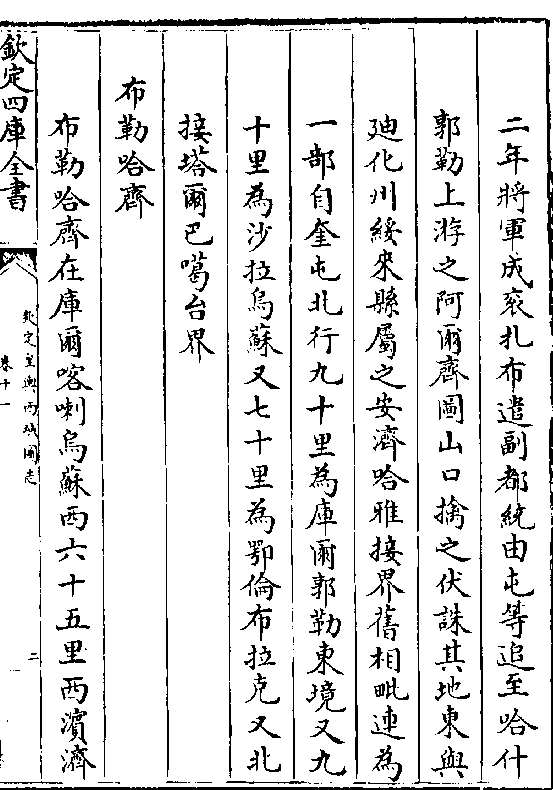 二年將軍成衮扎布遣副都統由屯等追至哈什
郭勒上游之阿爾齊圖山口擒之伏誅其地東與
廸化州綏來縣屬之安濟哈雅接界舊相毗連為
一部自奎屯北行九十里為庫爾郭勒東境又九
十里為沙拉烏蘇又七十里為鄂倫布拉克又北
接塔爾巴噶台界
布勒哈齊
布勒哈齊在庫爾喀喇烏蘇西六十五里西濱濟
欽定四庫全書
欽定皇輿西域圖志
卷十一
二